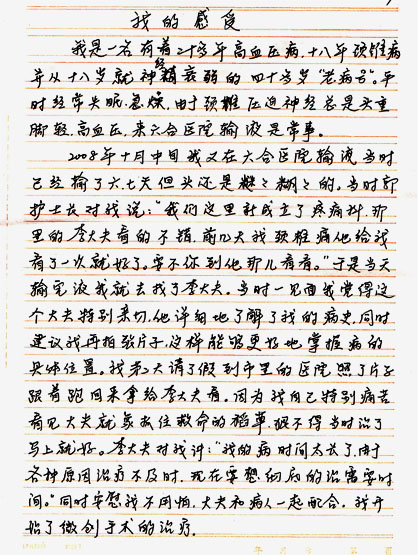 我的感受
我是一名有着二十多年高血压病,十八年颈椎病
并从十八岁就神经衰弱的四十多岁“老病号”。平
时经常失眠、急燥,由于颈椎压迫神经总是头重
脚轻,高血压,来六合医院输液是常事。
2008年十月中旬我又在六合医院输液,当时
已经输了六、七天但头还是糊糊的。当时郭
护士长对我说:“我们这里新成立了疼痛科,那
里的李大夫看的不错,前几天我颈椎痛他给我
看了一次就好了。要不你到他那儿看看。”于是当天
输完液我就去找了李大夫。当时一见面我觉得这
个大夫特别亲切,他详细地了解了我的病史,同时
建议我再拍张片子,这样能够更好地掌握病的
具体位置。我第二天请了假到市里的医院照了片子
跟着跑回来拿给李大夫看。因为我自己特别痛苦
看见大夫就象抓住救命的稻草,恨不得当时治了
马上就好。李大夫对我讲:“我的病时间太长了,由于
各种原因治疗不及时,现在要想彻底的治需要时
间。”同时安慰我不用怕,大夫和病人一起配合,我开
始了微创手术的治疗.